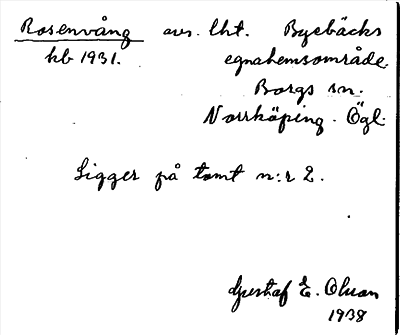 Rosenvång avs. lht. Byebäcks
hb 1931. egnahemsområde.
Borgs sn.
Norrköping. Ögl.
Ligger på tomt n:r 2.
Gustaf E. Olsson
1938